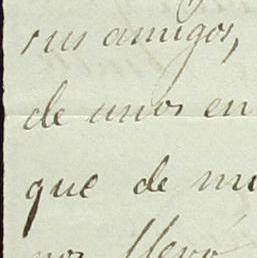 sus amigos,
de unos en
que de mu
nos llevó